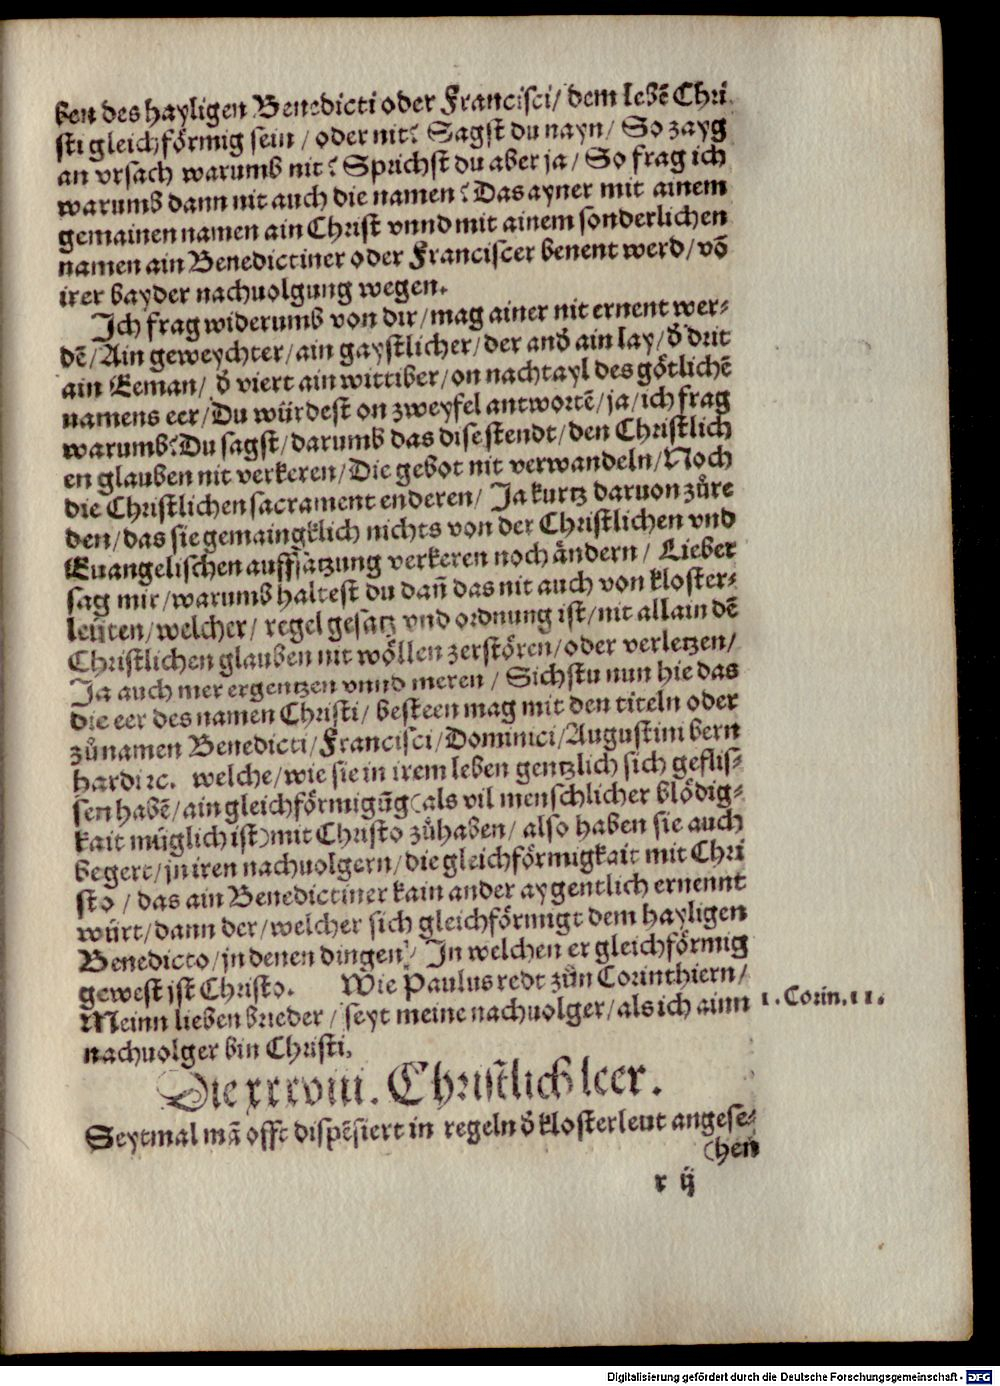 ben des hayligen Benedicti oder Francisci/ dem lebē Chri
sti gleichförmig sein / oder nit? Sagst du nayn/ So zayg
an vrsach warumb nit? Sprichst du aber ja/ So frag ich
warumb dann nit auch die namen? Das ayner mit ainem
gemainen namen ain Christ vnnd mit ainem sonderlichen
namen ain Benedictiner oder Franciscer benent werd/ vō
irer bayder nachuolgung wegen.
Ich frag widerumb von dir/ mag ainer nit ernent wer-
dē/ Ain geweychter/ ain gaystlicher/ der and̄ ain lay/ d̄ drit
ain Eeman/ d̄ viert ain wittiber/ on nachtayl des götlichē
namens eer/ Du würdest on zweyfel antwortē/ ja/ ich frag
warumb? Du sagst/ darumb das dise stendt/ den Christlich
en glauben nit verkeren/ Die gebot nit verwandeln/ Noch
die Christlichen sacrament enderen/ Ja kurtz daruon zůre
den/ das sie gemaingklich nichts von der Christlichen vnd
Euangelischen auffsatzung verkeren noch ändern/ Lieber
sag mir/ warumb haltest du dañ das nit auch von kloster-
leüten/ welcher/ regel gesatz vnd ordnung ist/ nit allain dē
Christlichen glauben nit wöllen zerstören/ oder verletzen/
Ja auch mer ergentzen vnnd meren / Sichstu nun hie das
die eer des namen Christi/ besteen mag mit den titeln oder
zůnamen Benedicti/ Francisci/ Dominici/ Augustini bern
hardi ꝛc. welche/ wie sie in irem leben gentzlich sich geflis-
sen habē/ ain gleichförmigūg (als vil menschlicher blödig-
kait müglich ist) mit Christo zůhaben/ also haben sie auch
begert/ jn iren nachuolgern/ die gleichförmigkait mit Chri
sto / das ain Benedictiner kain ander aygentlich ernennt
würt/ dann der/ welcher sich gleichförmigt dem hayligen
Benedicto/ jn denen dingen/ In welchen er gleichförmig
gewest jst Christo. Wie Paulus redt zůn Corinthiern/
Meinn lieben brieder / seyt meine nachuolger/ als ich ainn 1. Corin. 11.
nachuolger bin Christi.
Die xxxviii. Christlich leer.
Seytmal mā offt dispēsiert in regeln d̄ klosterleut angese-
hen
x ij
Digitalisierung gefördert durch die Deutsche Forschungsgemeinschaft - DFG